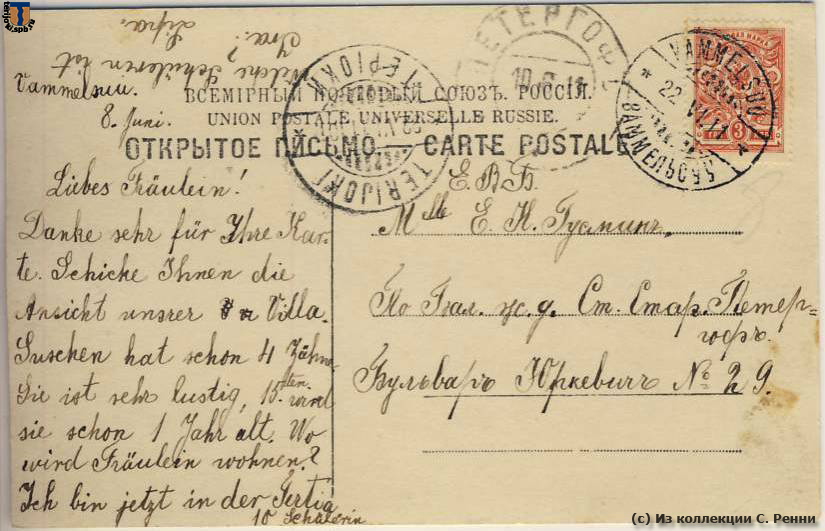 terijoki.spb.ru
Welche Schülerin ist
Ira?
Vammelsuu.
8. Juni.
ВСЕМІРНЫЙ ПОЧТОВЫЙ СОЮЗЪ. РОССІЯ.
UNION POSTALE UNIVERSELLE RUSSIE.
ОТКРЫТОЕ ПИСЬМО. — CARTE POSTALE
ПЕТЕРГОФ
10.6.11
TERIJOKI
ТЕРІОКИ
VAMMELSUU
22.VI.11
ВАММЕЛЬСУУ
3
Liebes Fräulein!
Danke sehr für Ihre Kar-
te. Schicke Ihnen die
Ansicht unsrer Villa.
Suschen hat schon 4 Zähne.
Sie ist sehr lustig, 15-ten wird
sie schon 1 Jahr alt. Wo
wird Fräulein wohnen?
Ich bin jetzt in der Tertia
10 Schülerin
Е. В. Б.
Mlle Е. К. Гусминъ,
По Бал. ж. д. Ст. Стар. Петер-
гофъ.
Бульваръ Юркевичъ № 29.
(c) Из коллекции С. Ренни